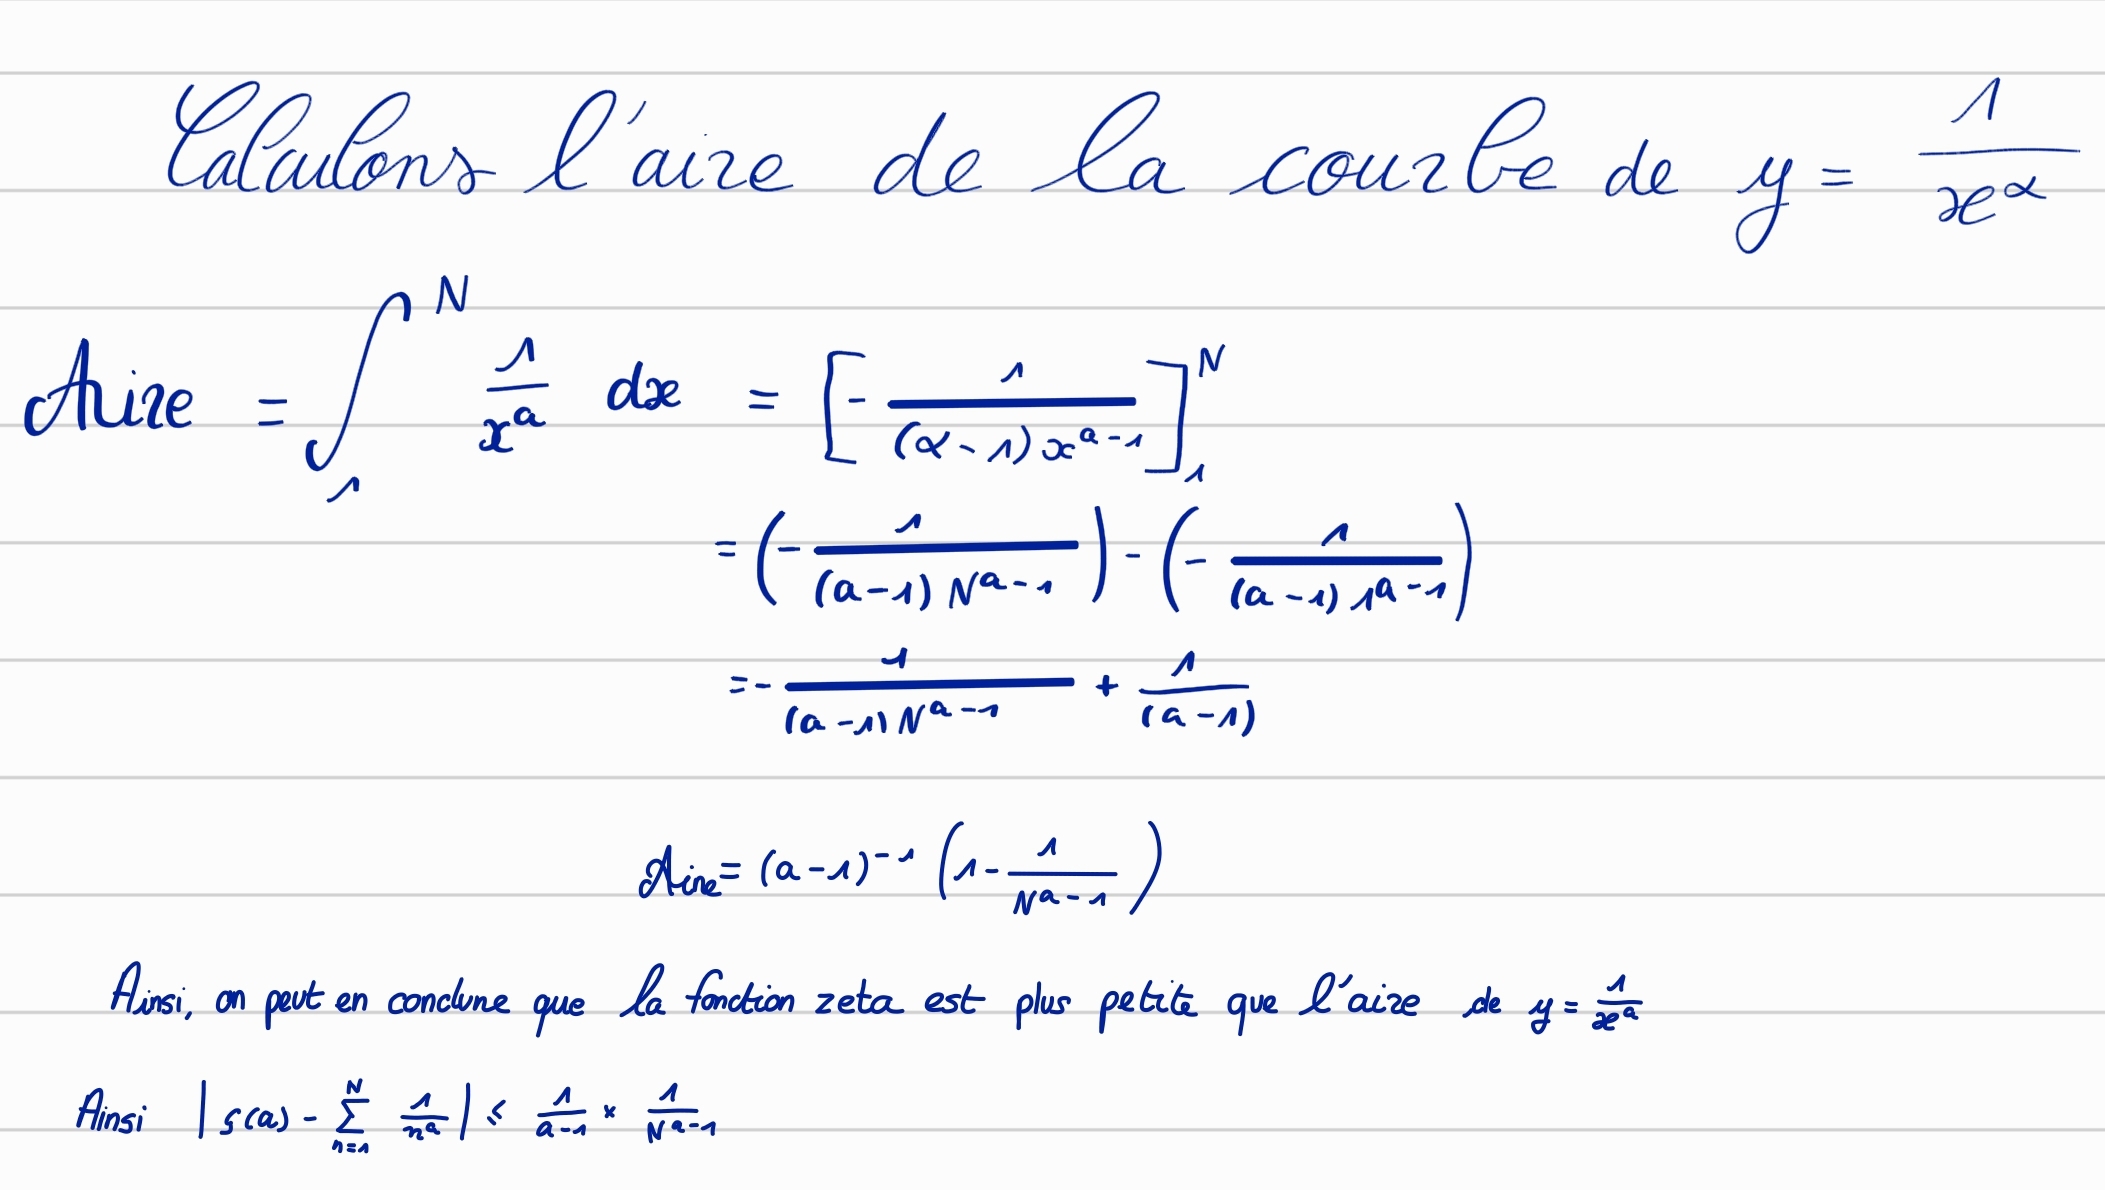 Calculons l'aire de la courbe de y = 1/x^α
Aire = ∫_1^N 1/x^a dx = [- 1/((α-1)x^(a-1))]_1^N
= (- 1/((a-1)N^(a-1))) - (- 1/((a-1)1^(a-1)))
= - 1/((a-1)N^(a-1)) + 1/(a-1)
Aire = (a-1)^-1 (1 - 1/N^(a-1))
Ainsi, on peut en conclure que la fonction zeta est plus petite que l'aire de y = 1/x^a
Ainsi |ς(a) - ∑_{n=1}^N 1/n^a| ≤ 1/(a-1) × 1/N^(a-1)